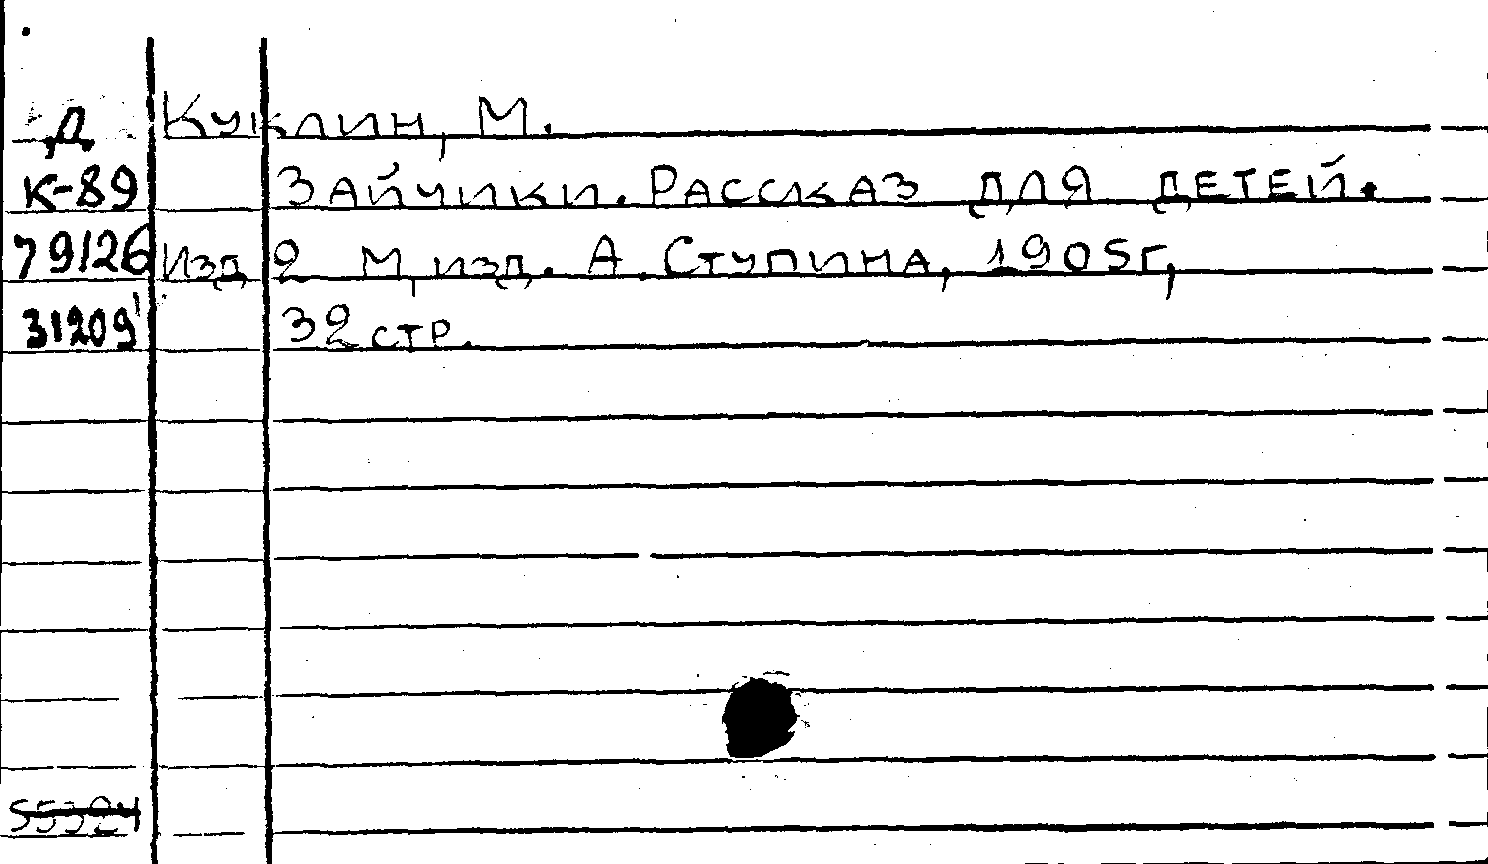 Д Куклин, М.
К-89 Зайчики. Рассказ для детей.
79126 Изд 2 М, изд. А. Ступина, 1905г,
31209 32 стр.
55324